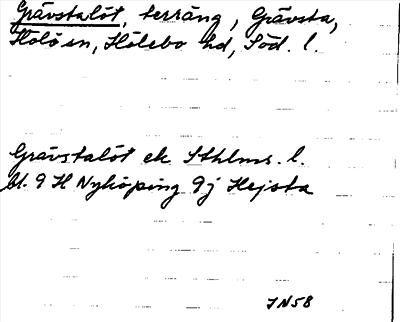 Grävstalöt, terräng, Grävsta,
Hölö sn, Hölebo hd, Söd. l.
Grävstalöt ek Sthlms. l.
bl. 9 H Nyköping 9j Hejsta
JN58